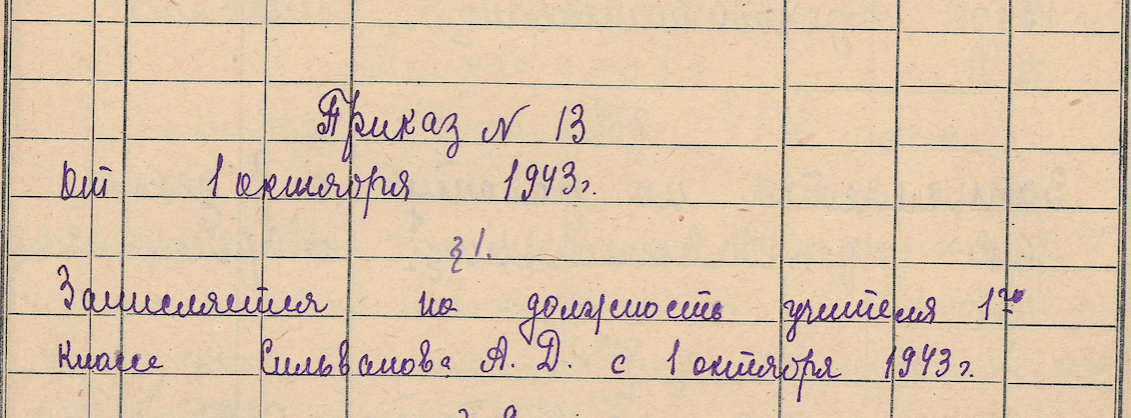 Приказ № 13
От 1 октября 1943 г.
§ 1.
Зачисляется на должность учителя 1го
класса Сильванова А. Д. с 1 октября 1943 г.